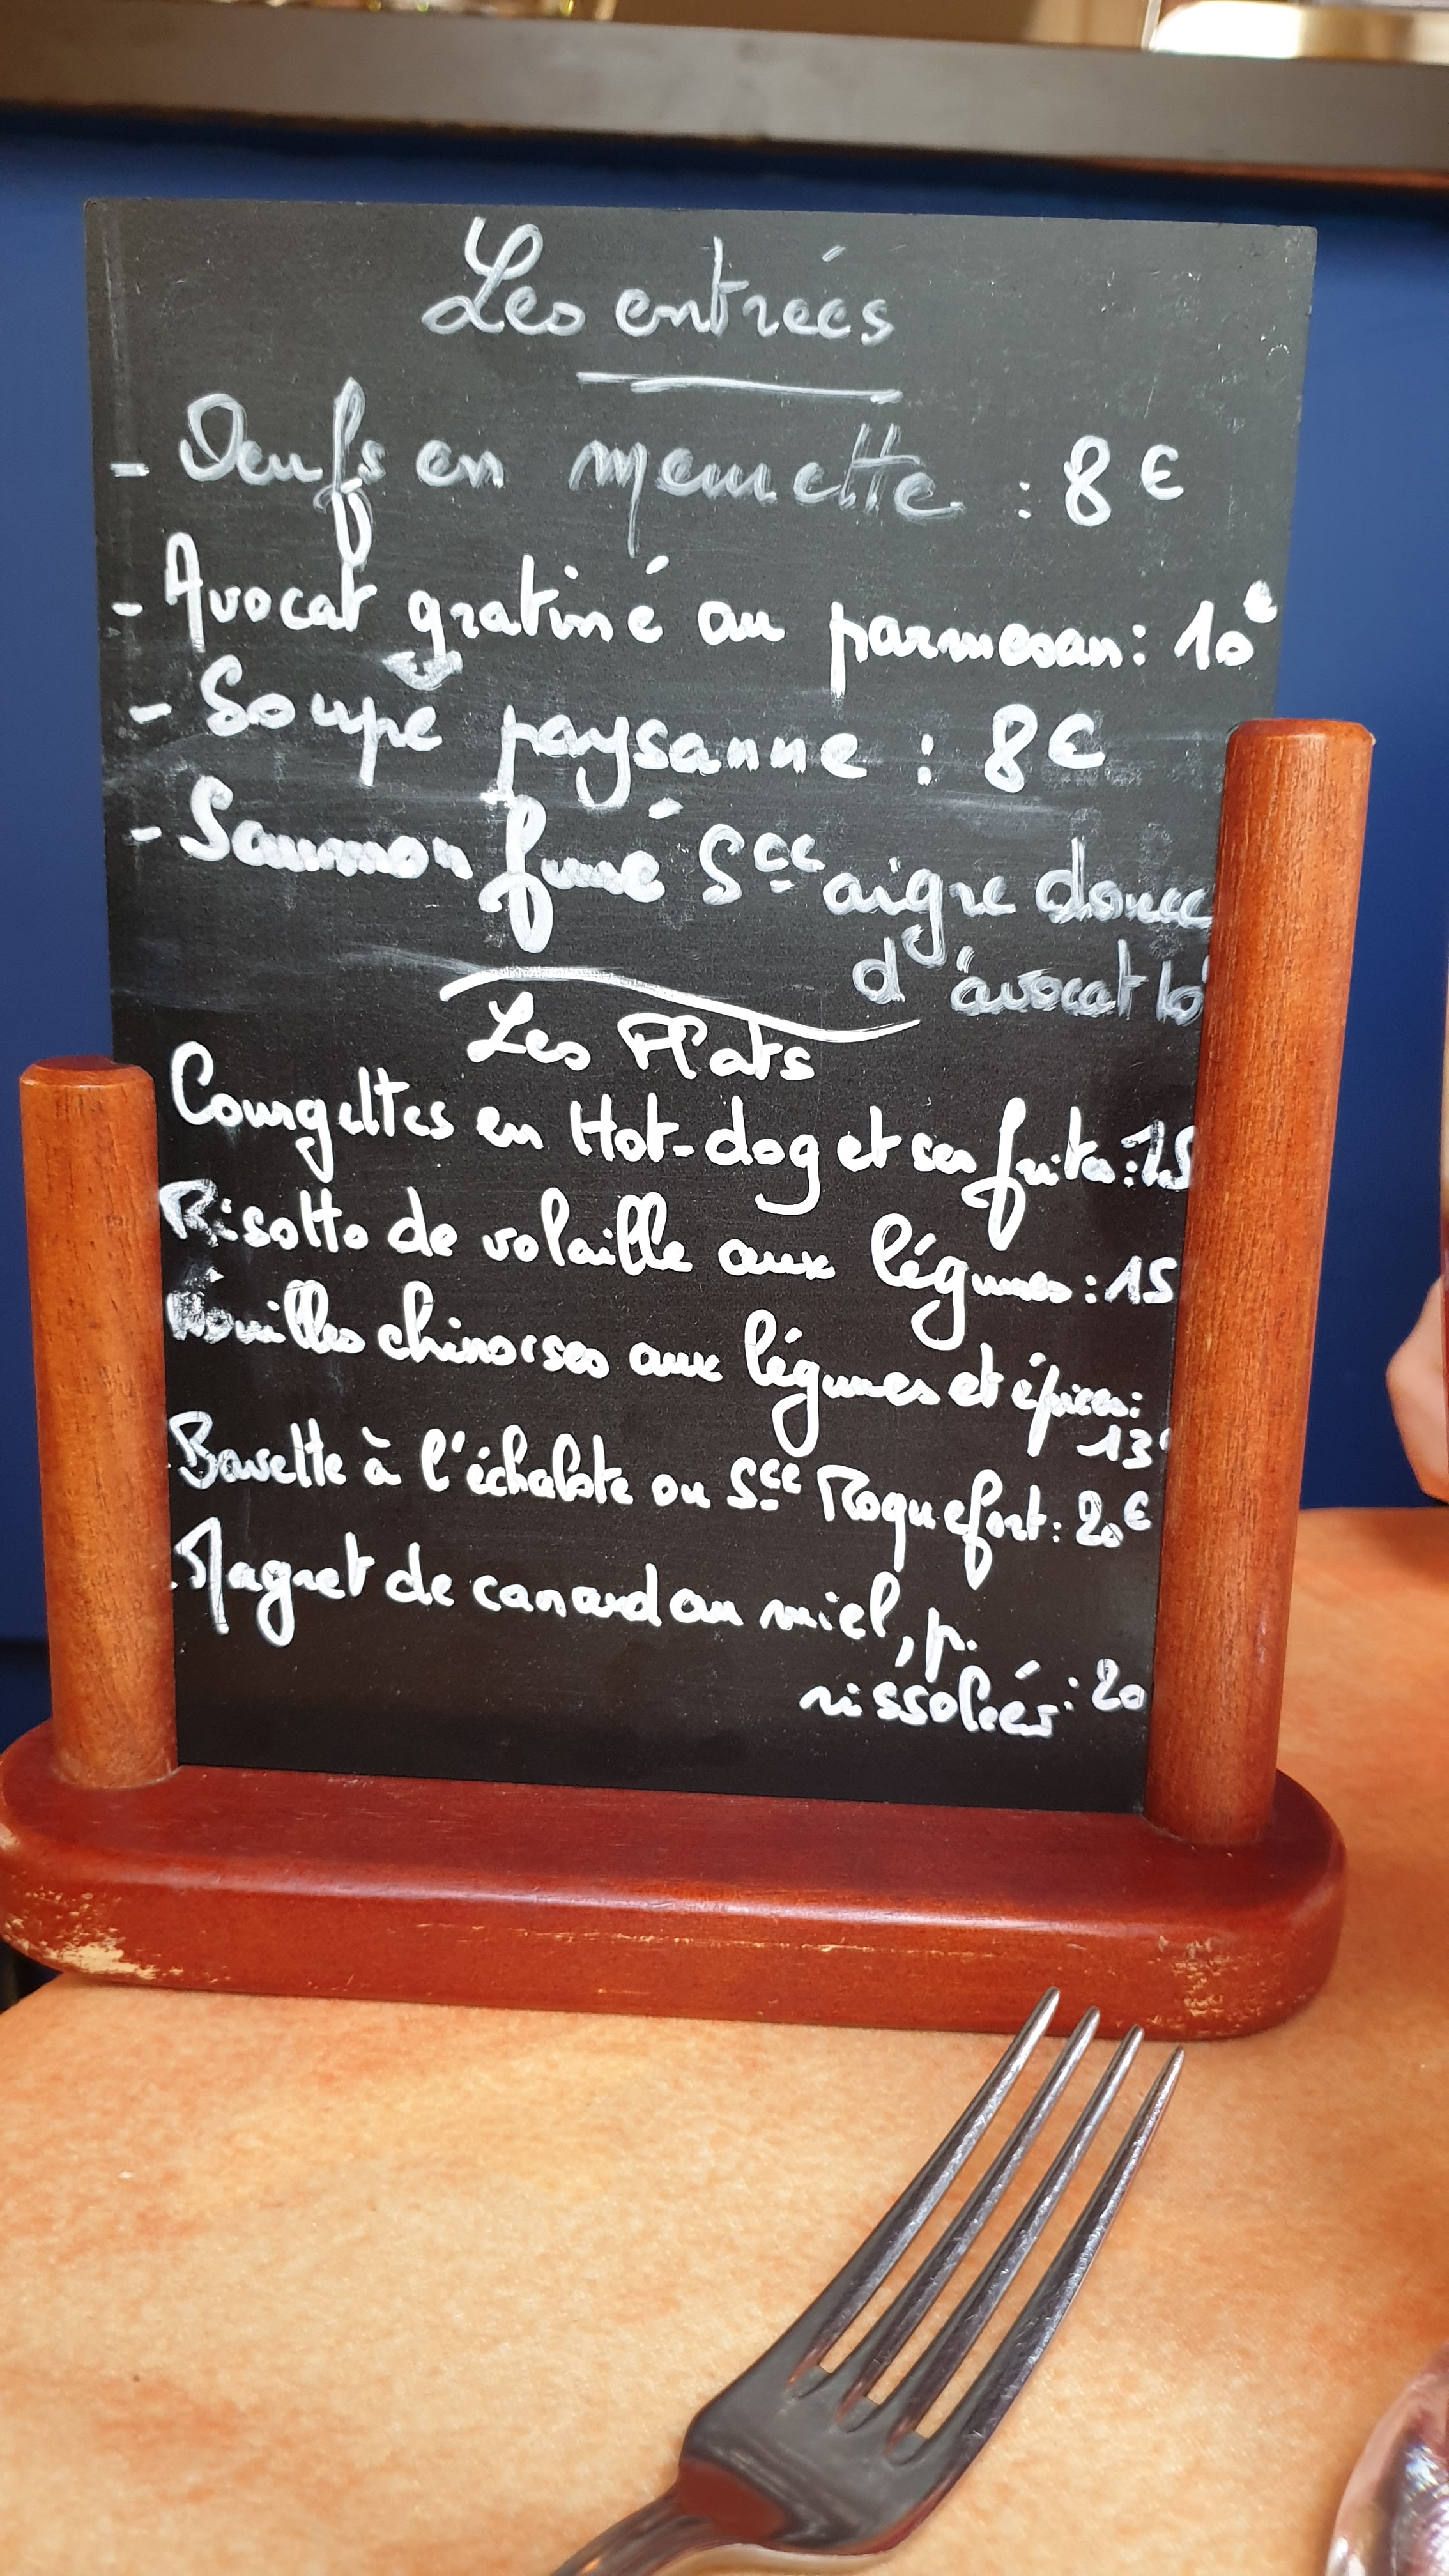 Les entrées
- Oeufs en meurette : 8 €
- Avocat gratiné au parmesan : 10 €
- Soupe paysanne : 8 €
- Saumon fumé Sce aigre douce
d'avocat 10
Les Plats
Courgettes en Hot-dog et ses frites : 15
Risotto de volaille aux légumes : 15
Nouilles chinoises aux légumes et épices :
13
Bavette à l'échalote ou Sce Roquefort : 20 €
Magret de canard au miel, p.
rissolées : 20